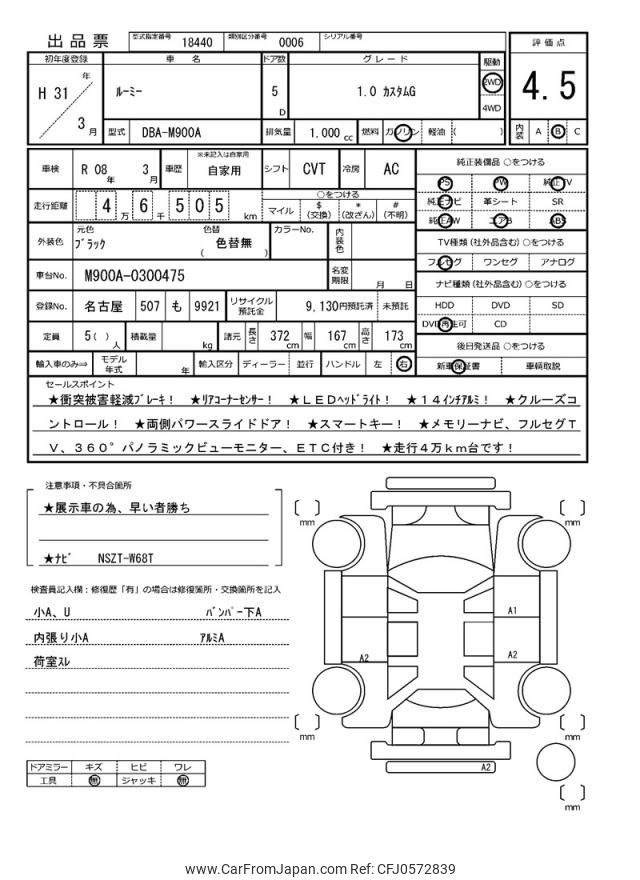 出品票 型式指定番号 18440 類別区分番号 0006 シリアル番号
初年度登録 車 名 ドア数 グレード 駆動 評価点
H 31 年 3 月 ルーミー 5 D 1.0 カスタムG 2WD 4WD 4.5
型式 DBA-M900A 排気量 1.000 cc 燃料 ガソリン 軽油 ( ) 内装 A B C
車検 R 08 年 3 月 車歴 ※未記入は自家用 自家用 シフト CVT 冷房 AC
純正装備品 ○をつける
PS PW 純正TV
純正ナビ 革シート SR
純正AW エアB ABS
走行距離 4 万 6 千 5 0 5 km ○をつける
マイル $ (交換) * (改ざん) # (不明)
外装色 元色 ブラック 色替 色替無 ( ) カラーNo. 内装色
TV種類 (社外品含む) ○をつける
フルセグ ワンセグ アナログ
車台No. M900A-0300475 名変期限 月 日
ナビ種類 (社外品含む) ○をつける
登録No. 名古屋 507 も 9921 リサイクル預託金 9,130円預託済 未預託
HDD DVD SD
DVD再生可 CD
定員 5( ) 人 積載量 kg 諸元 長さ 372 cm 幅 167 cm 高さ 173 cm
後日発送品 ○をつける
輸入車のみ⇒ モデル年式 年 輸入区分 ディーラー 並行 ハンドル 左 右
新車保証書 車輌取説
セールスポイント
★衝突被害軽減ブレーキ! ★リアコーナーセンサー! ★LEDヘッドライト! ★14インチアルミ! ★クルーズコ
ントロール! ★両側パワースライドドア! ★スマートキー! ★メモリーナビ、フルセグT
V、360°パノラミックビューモニター、ETC付き! ★走行4万km台です!
注意事項・不具合箇所
★展示車の為、早い者勝ち
★ナビ NSZT-W68T
検査員記入欄:修復歴「有」の場合は修復箇所・交換箇所を記入
小A、U バンパー下A
内張り小A アルミA
荷室スレ
ドアミラー キズ ヒビ ワレ
工具 無 ジャッキ 無
mm
mm
A1
A2
A2
mm
mm
A2
mm
www.CarFromJapan.com Ref: CFJ0572839